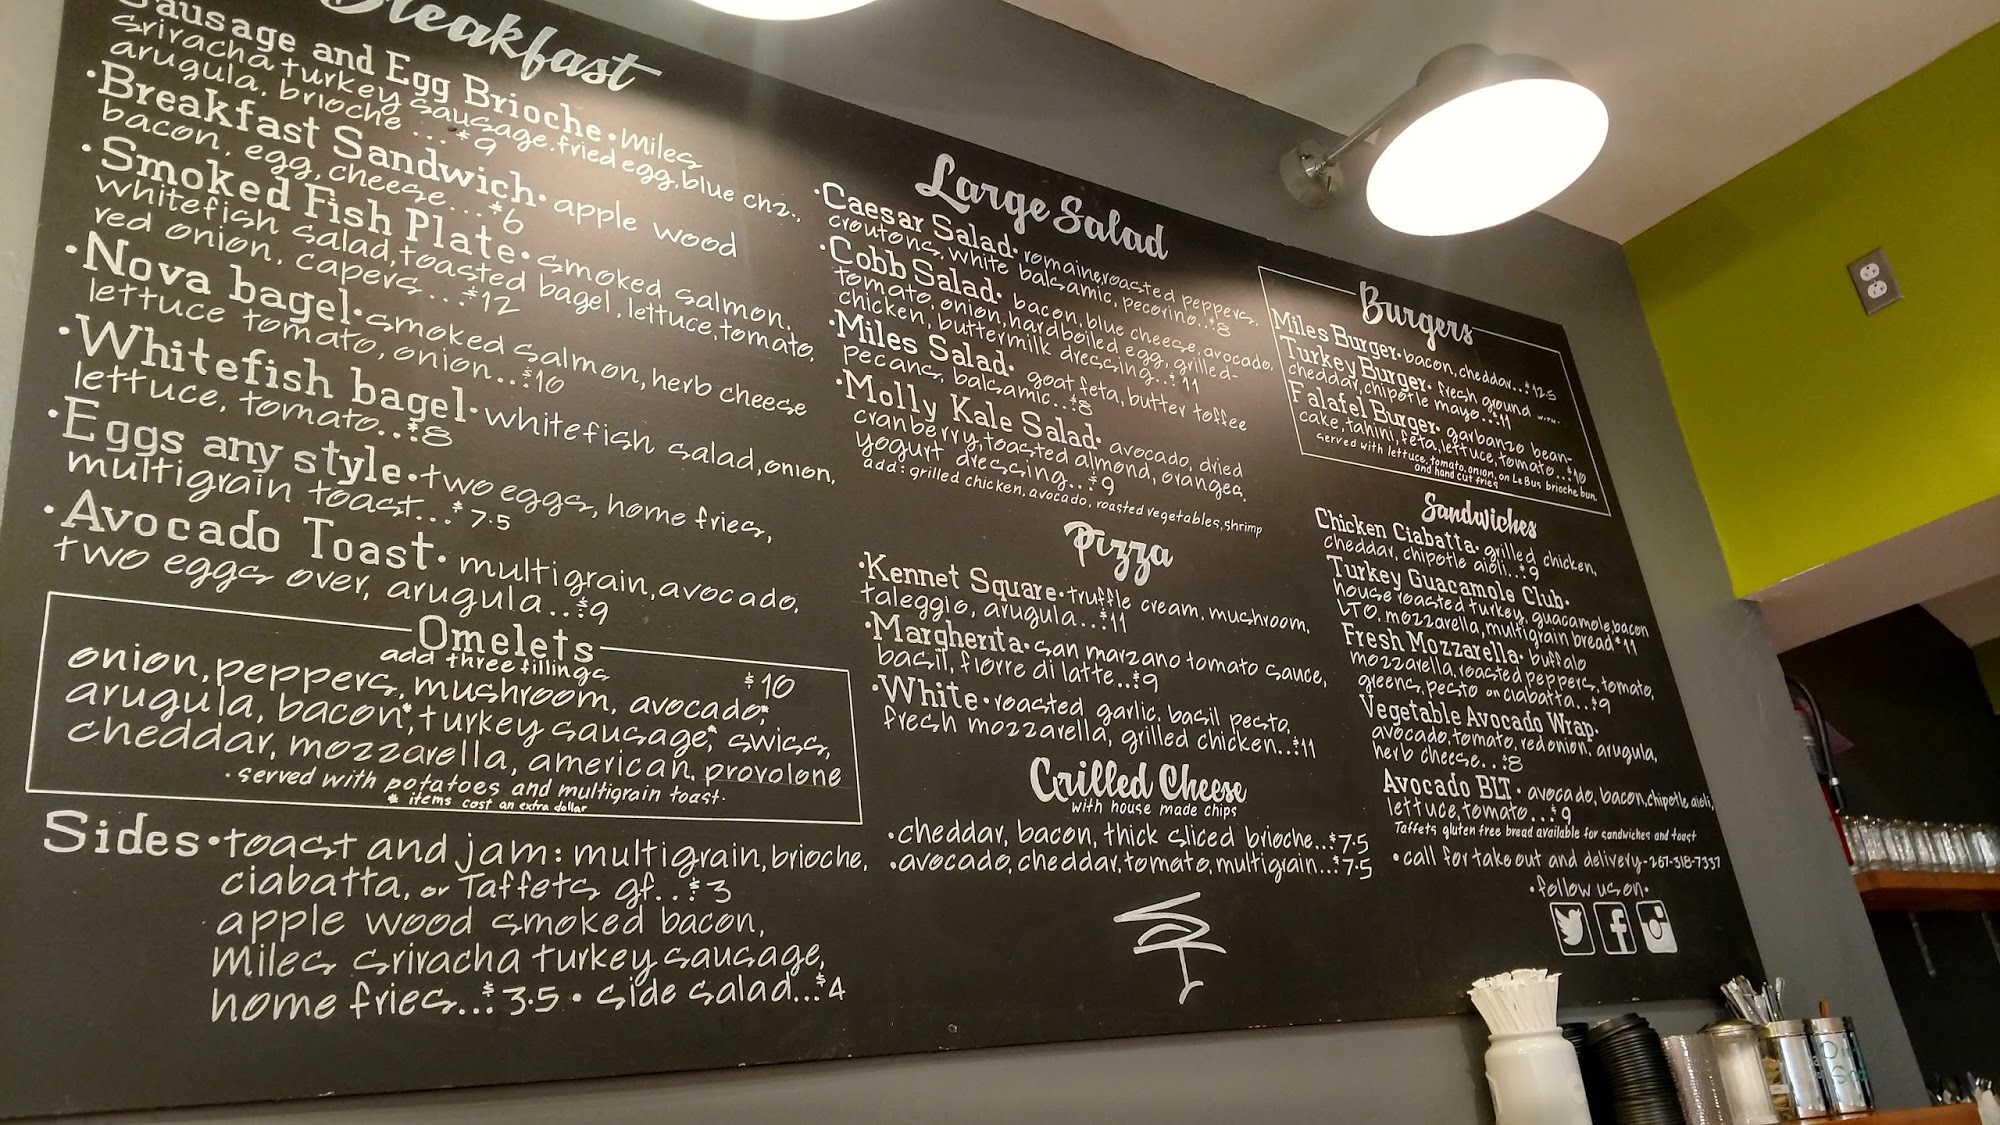 Breakfast
Sausage and Egg Brioche • Miles
sriracha turkey sausage, fried egg, blue chz.,
arugula, brioche ... $9
• Breakfast Sandwich • apple wood
bacon, egg, cheese... $6
• Smoked Fish Plate • smoked salmon,
whitefish salad, toasted bagel, lettuce, tomato,
red onion, capers ... $12
• Nova bagel • smoked salmon, herb cheese
lettuce tomato, onion... $10
• Whitefish bagel • whitefish salad, onion,
lettuce, tomato... $8
• Eggs any style • two eggs, home fries,
multigrain toast... $7.5
• Avocado Toast • multigrain, avocado,
two eggs over, arugula... $9
Omelets
add three fillings
$10
onion, peppers, mushroom, avocado,*
arugula, bacon*, turkey sausage*, swiss,
cheddar, mozzarella, american, provolone
• served with potatoes and multigrain toast •
* items cost an extra dollar
Sides • toast and jam: multigrain, brioche,
ciabatta, or Taffets gf... $3
apple wood smoked bacon,
Miles sriracha turkey sausage,
home fries... $3.5 • side salad... $4
Large Salad
• Caesar Salad • romaine, roasted peppers,
croutons, white balsamic, pecorino... $8
• Cobb Salad • bacon, blue cheese, avocado,
tomato, onion, hardboiled egg, grilled-
chicken, buttermilk dressing... $11
• Miles Salad • goat feta, butter toffee
pecans, balsamic... $8
• Molly Kale Salad • avocado, dried
cranberry, toasted almond, oranges,
yogurt dressing... $9
add: grilled chicken, avocado, roasted vegetables, shrimp
Pizza
• Kennet Square • truffle cream, mushroom,
taleggio, arugula... $11
• Margherita • san marzano tomato sauce,
basil, fiorre di latte... $9
• White • roasted garlic, basil pesto,
fresh mozzarella, grilled chicken... $11
Grilled Cheese
with house made chips
• cheddar, bacon, thick sliced brioche... $7.5
• avocado, cheddar, tomato, multigrain... $7.5
Burgers
Miles Burger • bacon, cheddar... $12.5
Turkey Burger • fresh ground
cheddar, chipotle mayo... $11
Falafel Burger • garbanzo bean-
cake, tahini, feta, lettuce, tomato... $10
served with lettuce, tomato, onion, on LeBus brioche bun,
and hand cut fries
Sandwiches
Chicken Ciabatta • grilled chicken,
cheddar, chipotle aioli... $9
Turkey Guacamole Club •
house roasted turkey, guacamole, bacon
LTO, mozzarella, multigrain bread $11
Fresh Mozzarella • buffalo
mozzarella, roasted peppers, tomato,
greens, pesto on ciabatta... $9
Vegetable Avocado Wrap •
avocado, tomato, red onion, arugula,
herb cheese... $8
Avocado BLT • avocado, bacon, chipotle aioli,
lettuce, tomato... $9
Taffets gluten free bread available for sandwiches and toast
• call for take out and delivery - 267-318-7337
• follow us on •